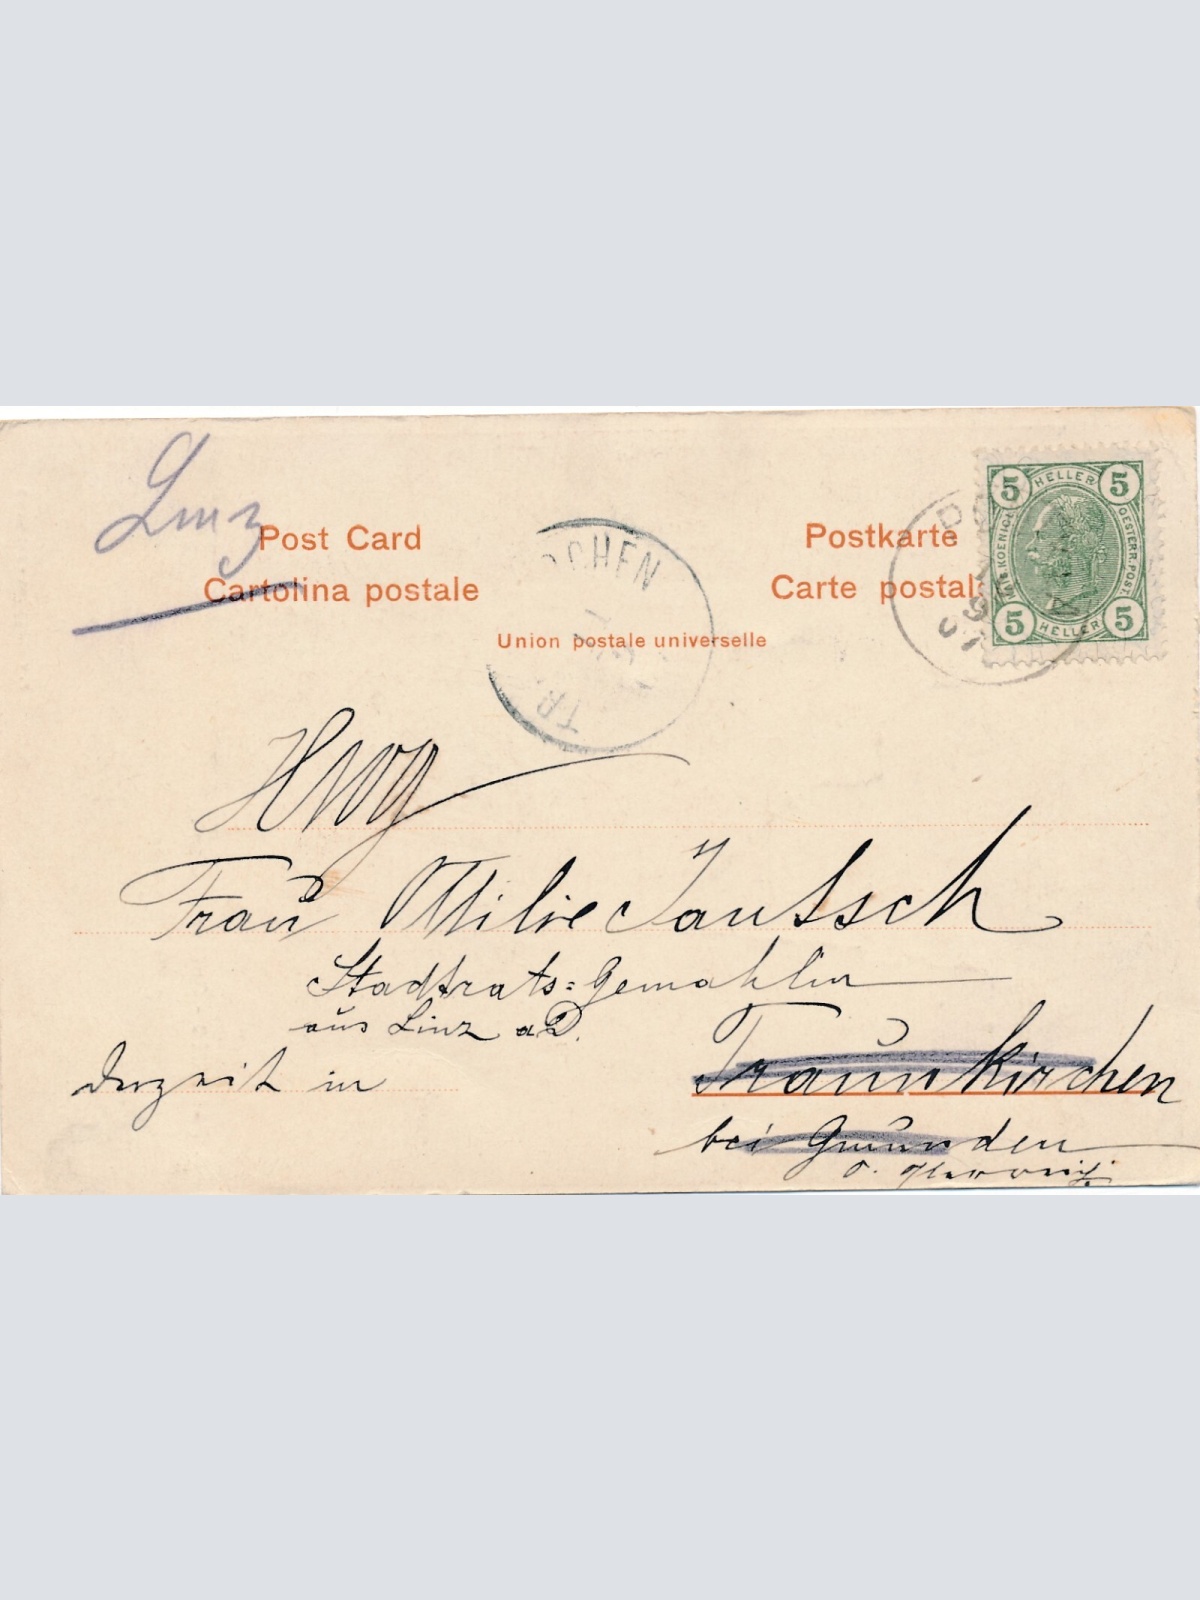 Linz
Post Card
Cartolina postale
Postkarte
Carte postal
Union postale universelle
CHEN
TR
5 HELLER 5
KOENIGL OESTERR. POST
5 HELLER 5
07
Frau Milie Jautsch
Stadtrats=Gemahlin
aus Linz a D.
derzeit in
Traunkirchen
bei Gmunden